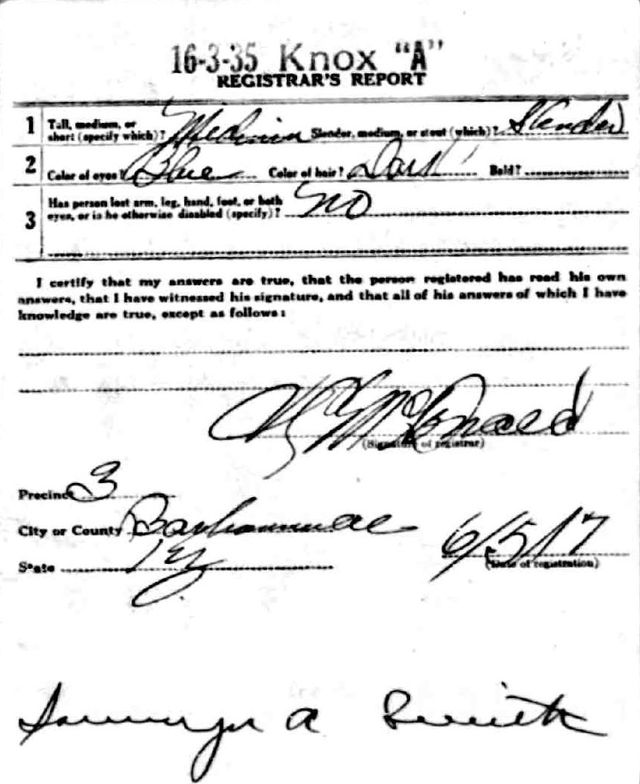 16-3-35 Knox "A"
REGISTRAR'S REPORT
1 Tall, medium, or short (specify which)? Medium Slender, medium, or stout (which)? Slender
2 Color of eyes? Blue Color of hair? Dark Bald?
3 Has person lost arm, leg, hand, foot, or both eyes, or is he otherwise disabled (specify)? No
I certify that my answers are true, that the person registered has read his own
answers, that I have witnessed his signature, and that all of his answers of which I have
knowledge are true, except as follows:
McDonald
(Signature of registrar)
Precinct 3
City or County
State Ky
6/5/17
(Date of registration)
A Smith